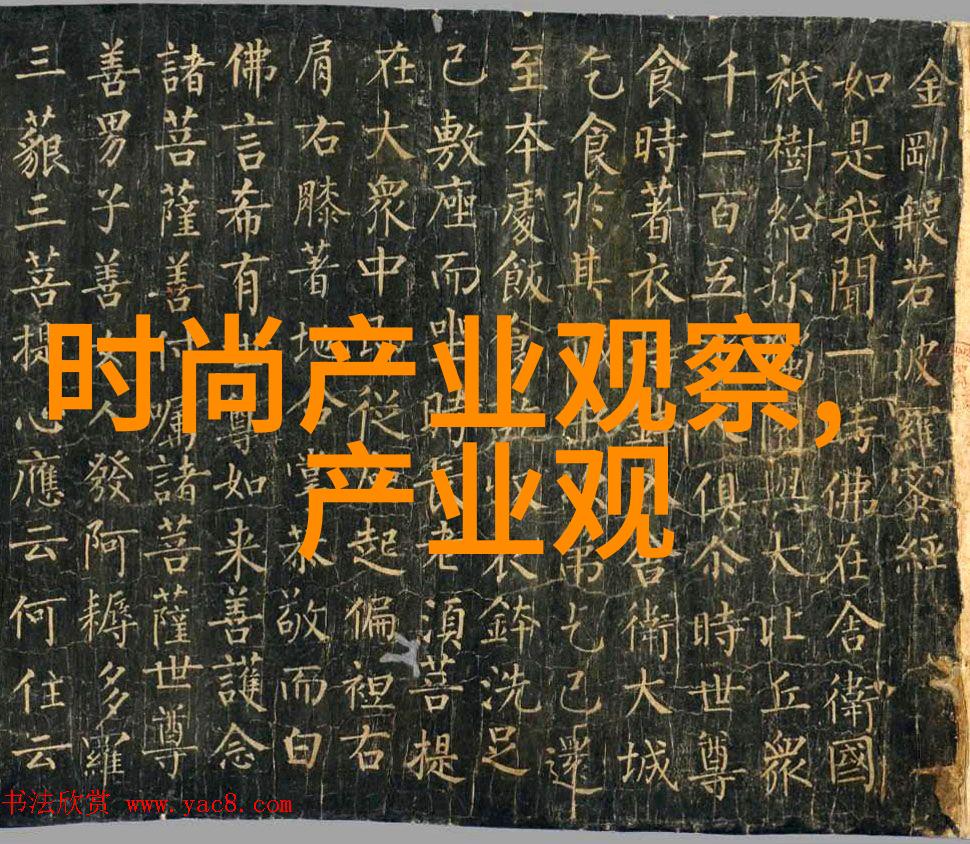 金剛般若波羅蜜經
如是我聞一時佛在舍衛國
祇樹給孤園與大比丘衆
千二百五俱尒時世尊
食時著衣舍衛大城
乞食於其乞已還
至本處飯食衣鉢洗足
已敷座而坐時長老須菩提
在大衆中從起偏袒右
肩右膝著地合掌恭敬而白
佛言希有世尊如来善護念
諸菩薩善付囑諸菩薩世尊
善男子善女人發阿耨多羅
三藐三菩提心應云何住云
时尚产业观察,
产业观
书法欣赏 www.yac8.com